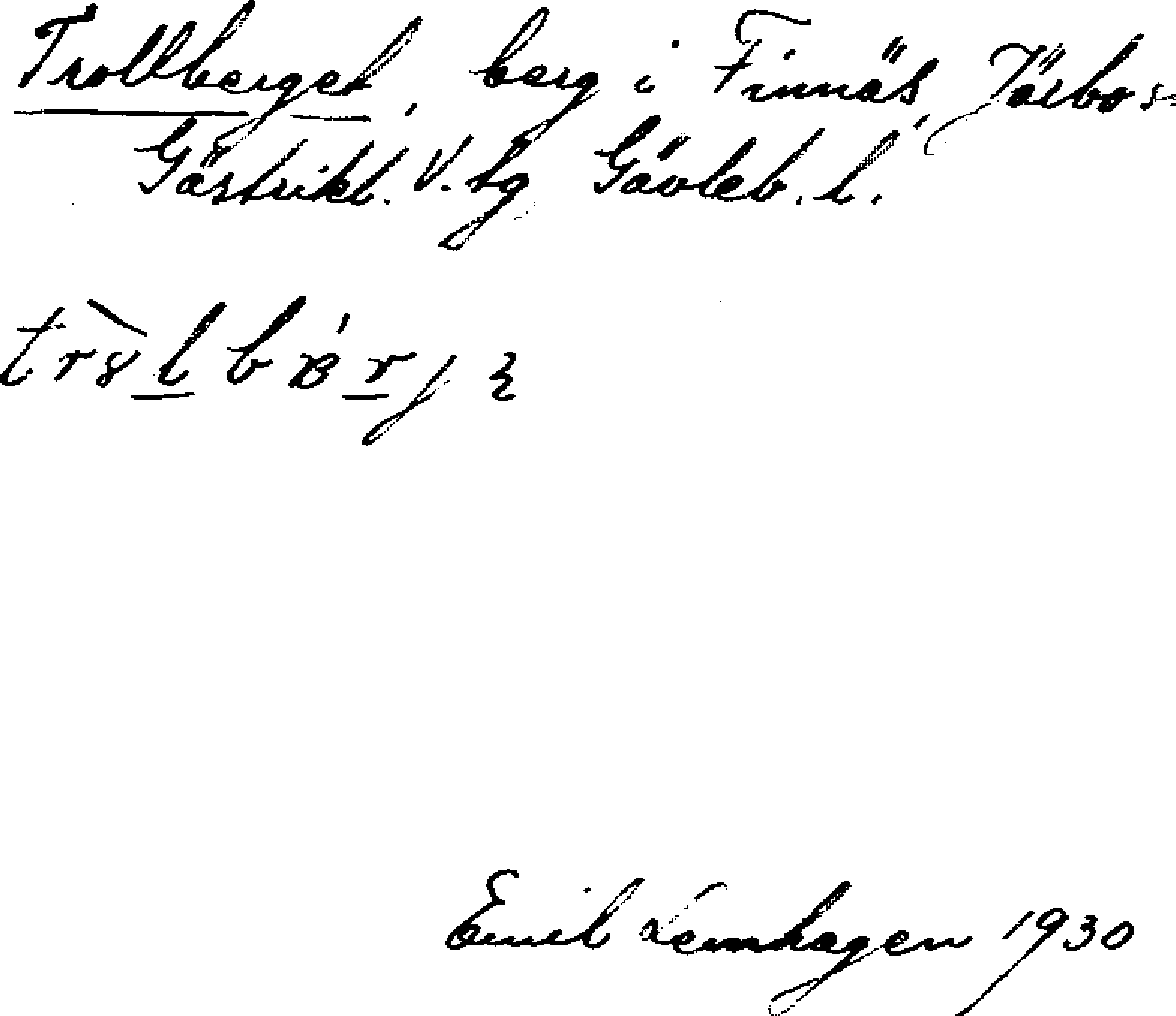 Trollberget, berg i Finnäs, Järbo sn
Gästrikl. V. tg Gävleb. l.
trɤ̀lbǽrjɛ
Emil Lennhagen 1930